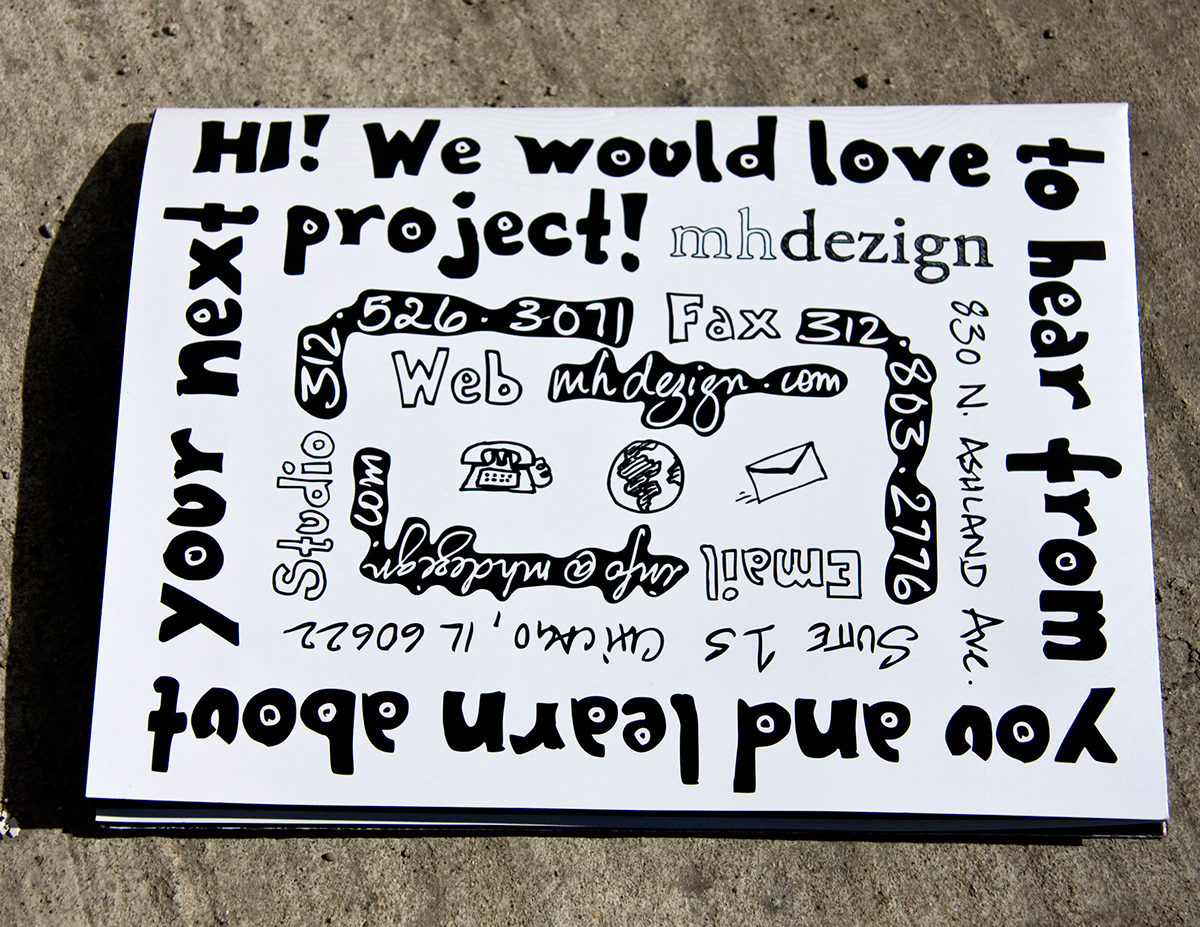 HI! We would love
to hear from
you and learn about
your next
project!
mhdezign
830 N. ASHLAND AVE.
SUITE 1S CHICAGO, IL 60622
Studio 312.526.3071
Fax 312.863.2776
Web mhdezign.com
Email info@mhdezign.com